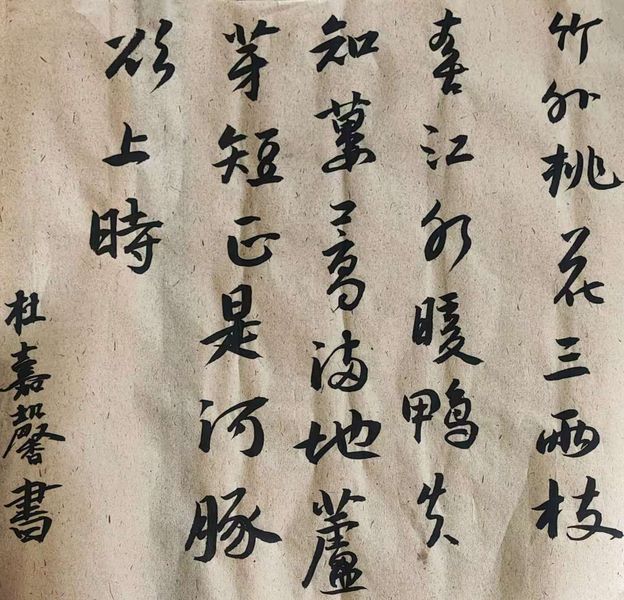 竹外桃花三兩枝
春江水暖鴨先
知蔞蒿滿地蘆
芽短正是河豚
欲上時
杜嘉馨書